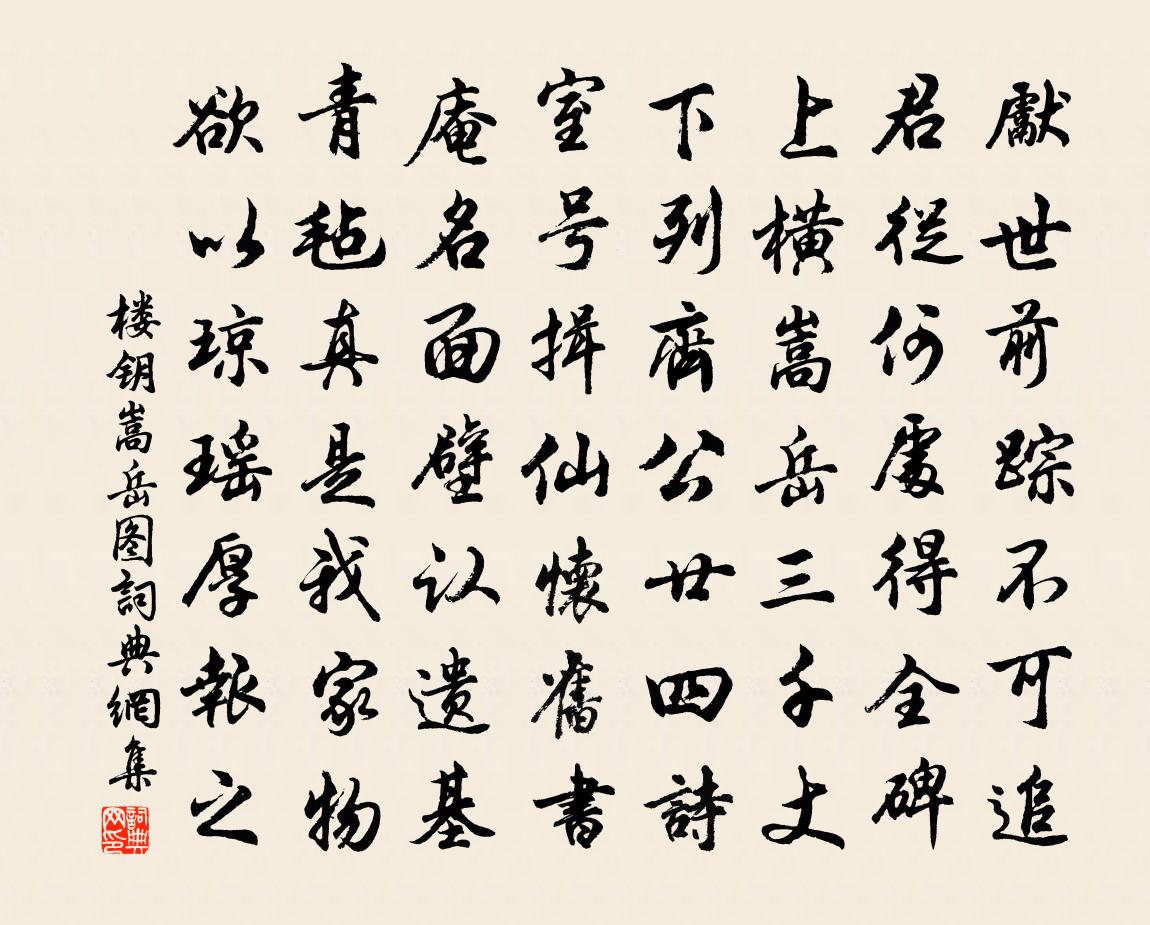 獻世前踪不可追
君從何處得全碑
上橫嵩岳三千丈
下列齊公廿四詩
室号揖仙懷舊書
庵名面壁认遗基
青毡真是我家物
欲以琼瑶厚報之
楼钥嵩岳图詞典網集
詞典网印